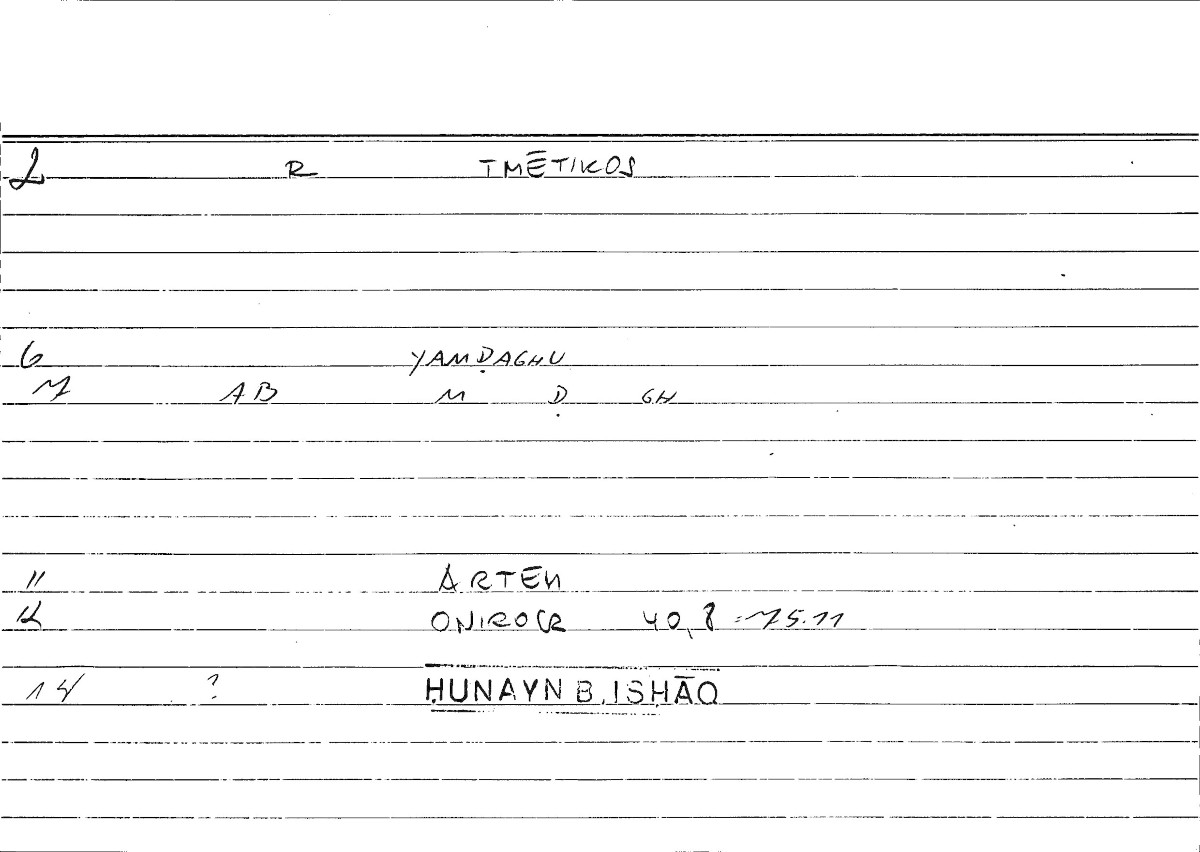 2 R TMĒTIKOS
6 YAMḌAGHU
7 AB M Ḍ GH
11 ARTEM
12 ONIROCR 40,8 = 75.11
14 ? ḤUNAYN B. ISḤĀQ